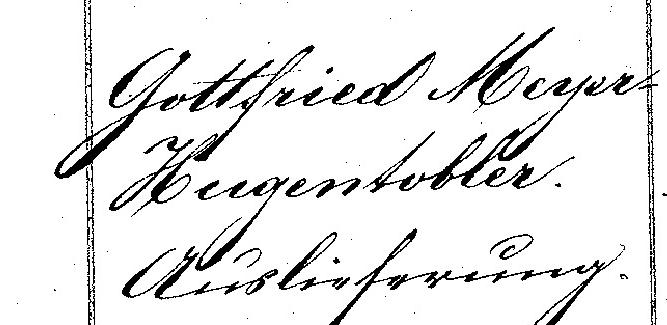 Gottfried Meyer-
Hugentobler.
Auslieferung.